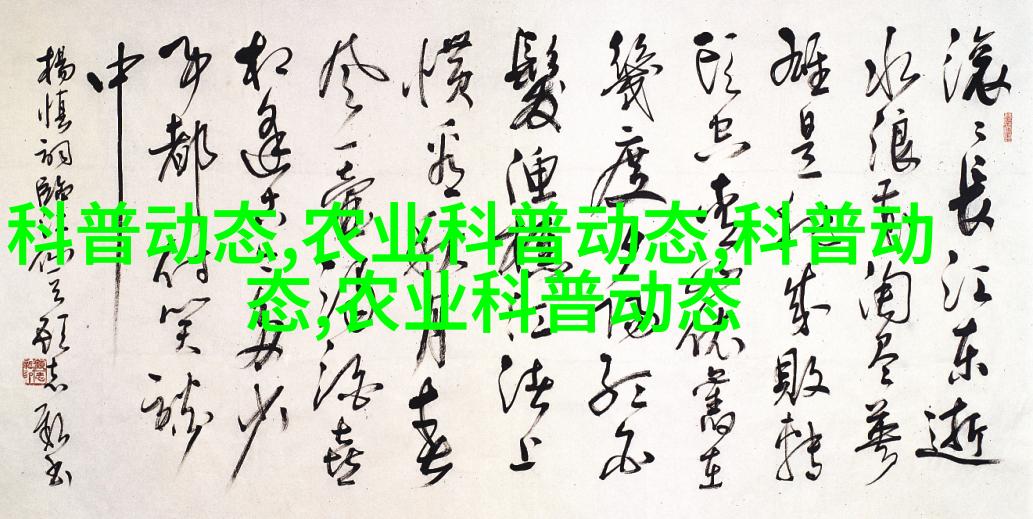 科普动态,农业科普动态,科普动
态,农业科普动态
滚〻長江东逝
水浪花淘尽英
雄是非成败转
头空青山依舊在
幾度夕阳红白
髮渔樵江渚上
惯看秋月春
风一壶浊酒喜
相逢古今多少
事都付笑谈
中
楊慎词臨江仙